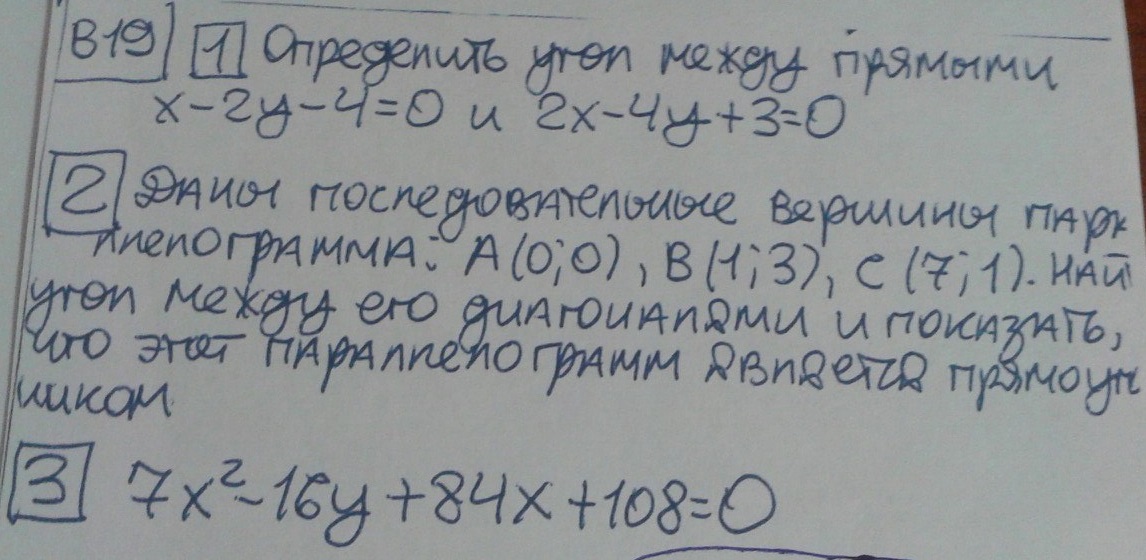 В19 1 Определить угол между прямыми
x-2y-4=0 и 2x-4y+3=0
2 Даны последовательные вершины пар
ллелограмма: A(0;0), B(1;3), C(7;1). Най
угол между его диагоналями и показать,
что этот параллелограмм является прямоуг
ником
3 7x²-16y+84x+108=0